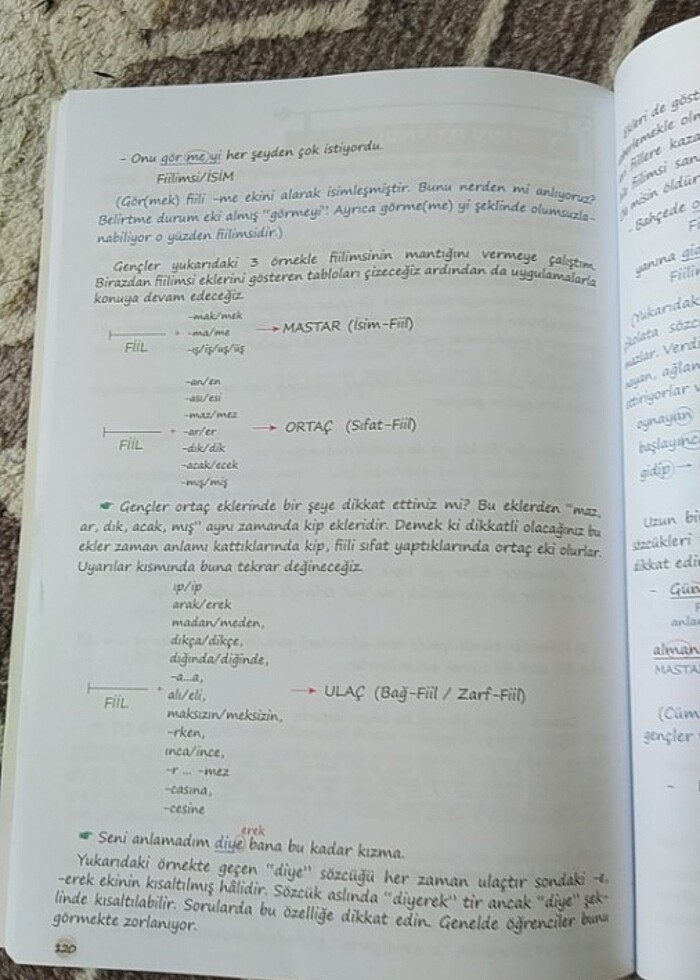 - Onu görmeyi her şeyden çok istiyordu.
Fiilimsi/İSİM
(Gör(mek) fiili -me ekini alarak isimleşmiştir. Bunu nerden mi anlıyoruz?
Belirtme durum eki almış "görmeyi". Ayrıca görme(me) yi şeklinde olumsuzla-
nabiliyor o yüzden fiilimsidir.)
Gençler yukarıdaki 3 örnekle fiilimsinin mantığını vermeye çalıştım.
Birazdan fiilimsi eklerini gösteren tabloları çizeceğiz ardından da uygulamalarla
konuya devam edeceğiz.
-mak/mek
FİİL + -ma/me → MASTAR (İsim-Fiil)
-ış/iş/uş/üş
-an/en
-ası/esi
-maz/mez
FİİL + -ar/er → ORTAÇ (Sıfat-Fiil)
-dık/dik
-acak/ecek
-mış/miş
Gençler ortaç eklerinde bir şeye dikkat ettiniz mi? Bu eklerden "maz,
ar, dık, acak, mış" aynı zamanda kip ekleridir. Demek ki dikkatli olacağınız bu
ekler zaman anlamı kattıklarında kip, fiili sıfat yaptıklarında ortaç eki olurlar.
Uyarılar kısmında buna tekrar değineceğiz.
ıp/ip
arak/erek
madan/meden,
dıkça/dikçe,
dığında/diğinde,
-a...a,
FİİL + alı/eli, → ULAÇ (Bağ-Fiil / Zarf-Fiil)
maksızın/meksizin,
-rken,
ınca/ince,
-r ... -mez
-casına,
-cesine
erek
Seni anlamadım diye bana bu kadar kızma.
Yukarıdaki örnekte geçen "diye" sözcüğü her zaman ulaçtır sondaki -e,
-erek ekinin kısaltılmış hâlidir. Sözcük aslında "diyerek" tir ancak "diye" şek-
linde kısaltılabilir. Sorularda bu özelliğe dikkat edin. Genelde öğrenciler bunu
görmekte zorlanıyor.
120
- Bahçede
yanına
(Yukarıdak
oynayan
başlayınca
gidip →
Uzun bir
sözcükleri
dikkat edin
anla
alman
MASTAR
(Cüm
gençler